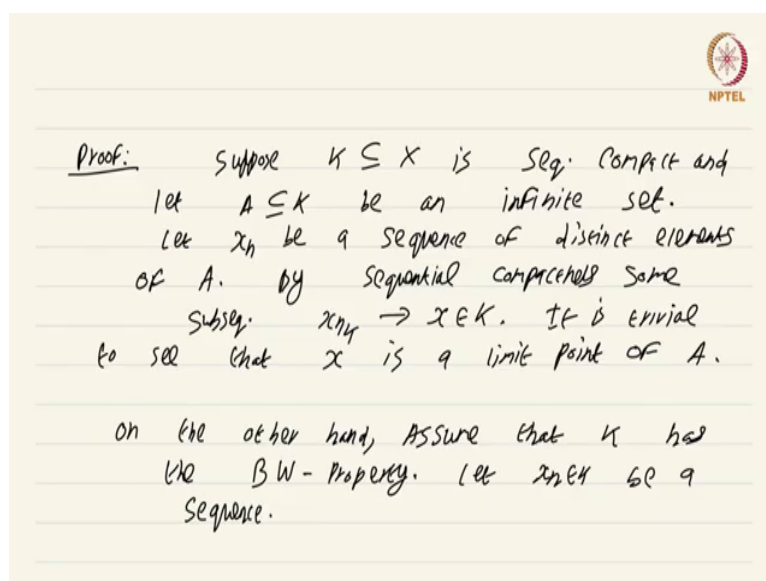 NPTEL
Proof: Suppose K ⊆ X is seq. compact and
let A ⊆ K be an infinite set.
Let xₙ be a sequence of distinct elements
of A. By sequential compactness some
subseq. xₙₖ → x ∈ K. It is trivial
to see that x is a limit point of A.
On the other hand, Assume that K has
the BW-Property. Let xₙ ∈ K be a
sequence.